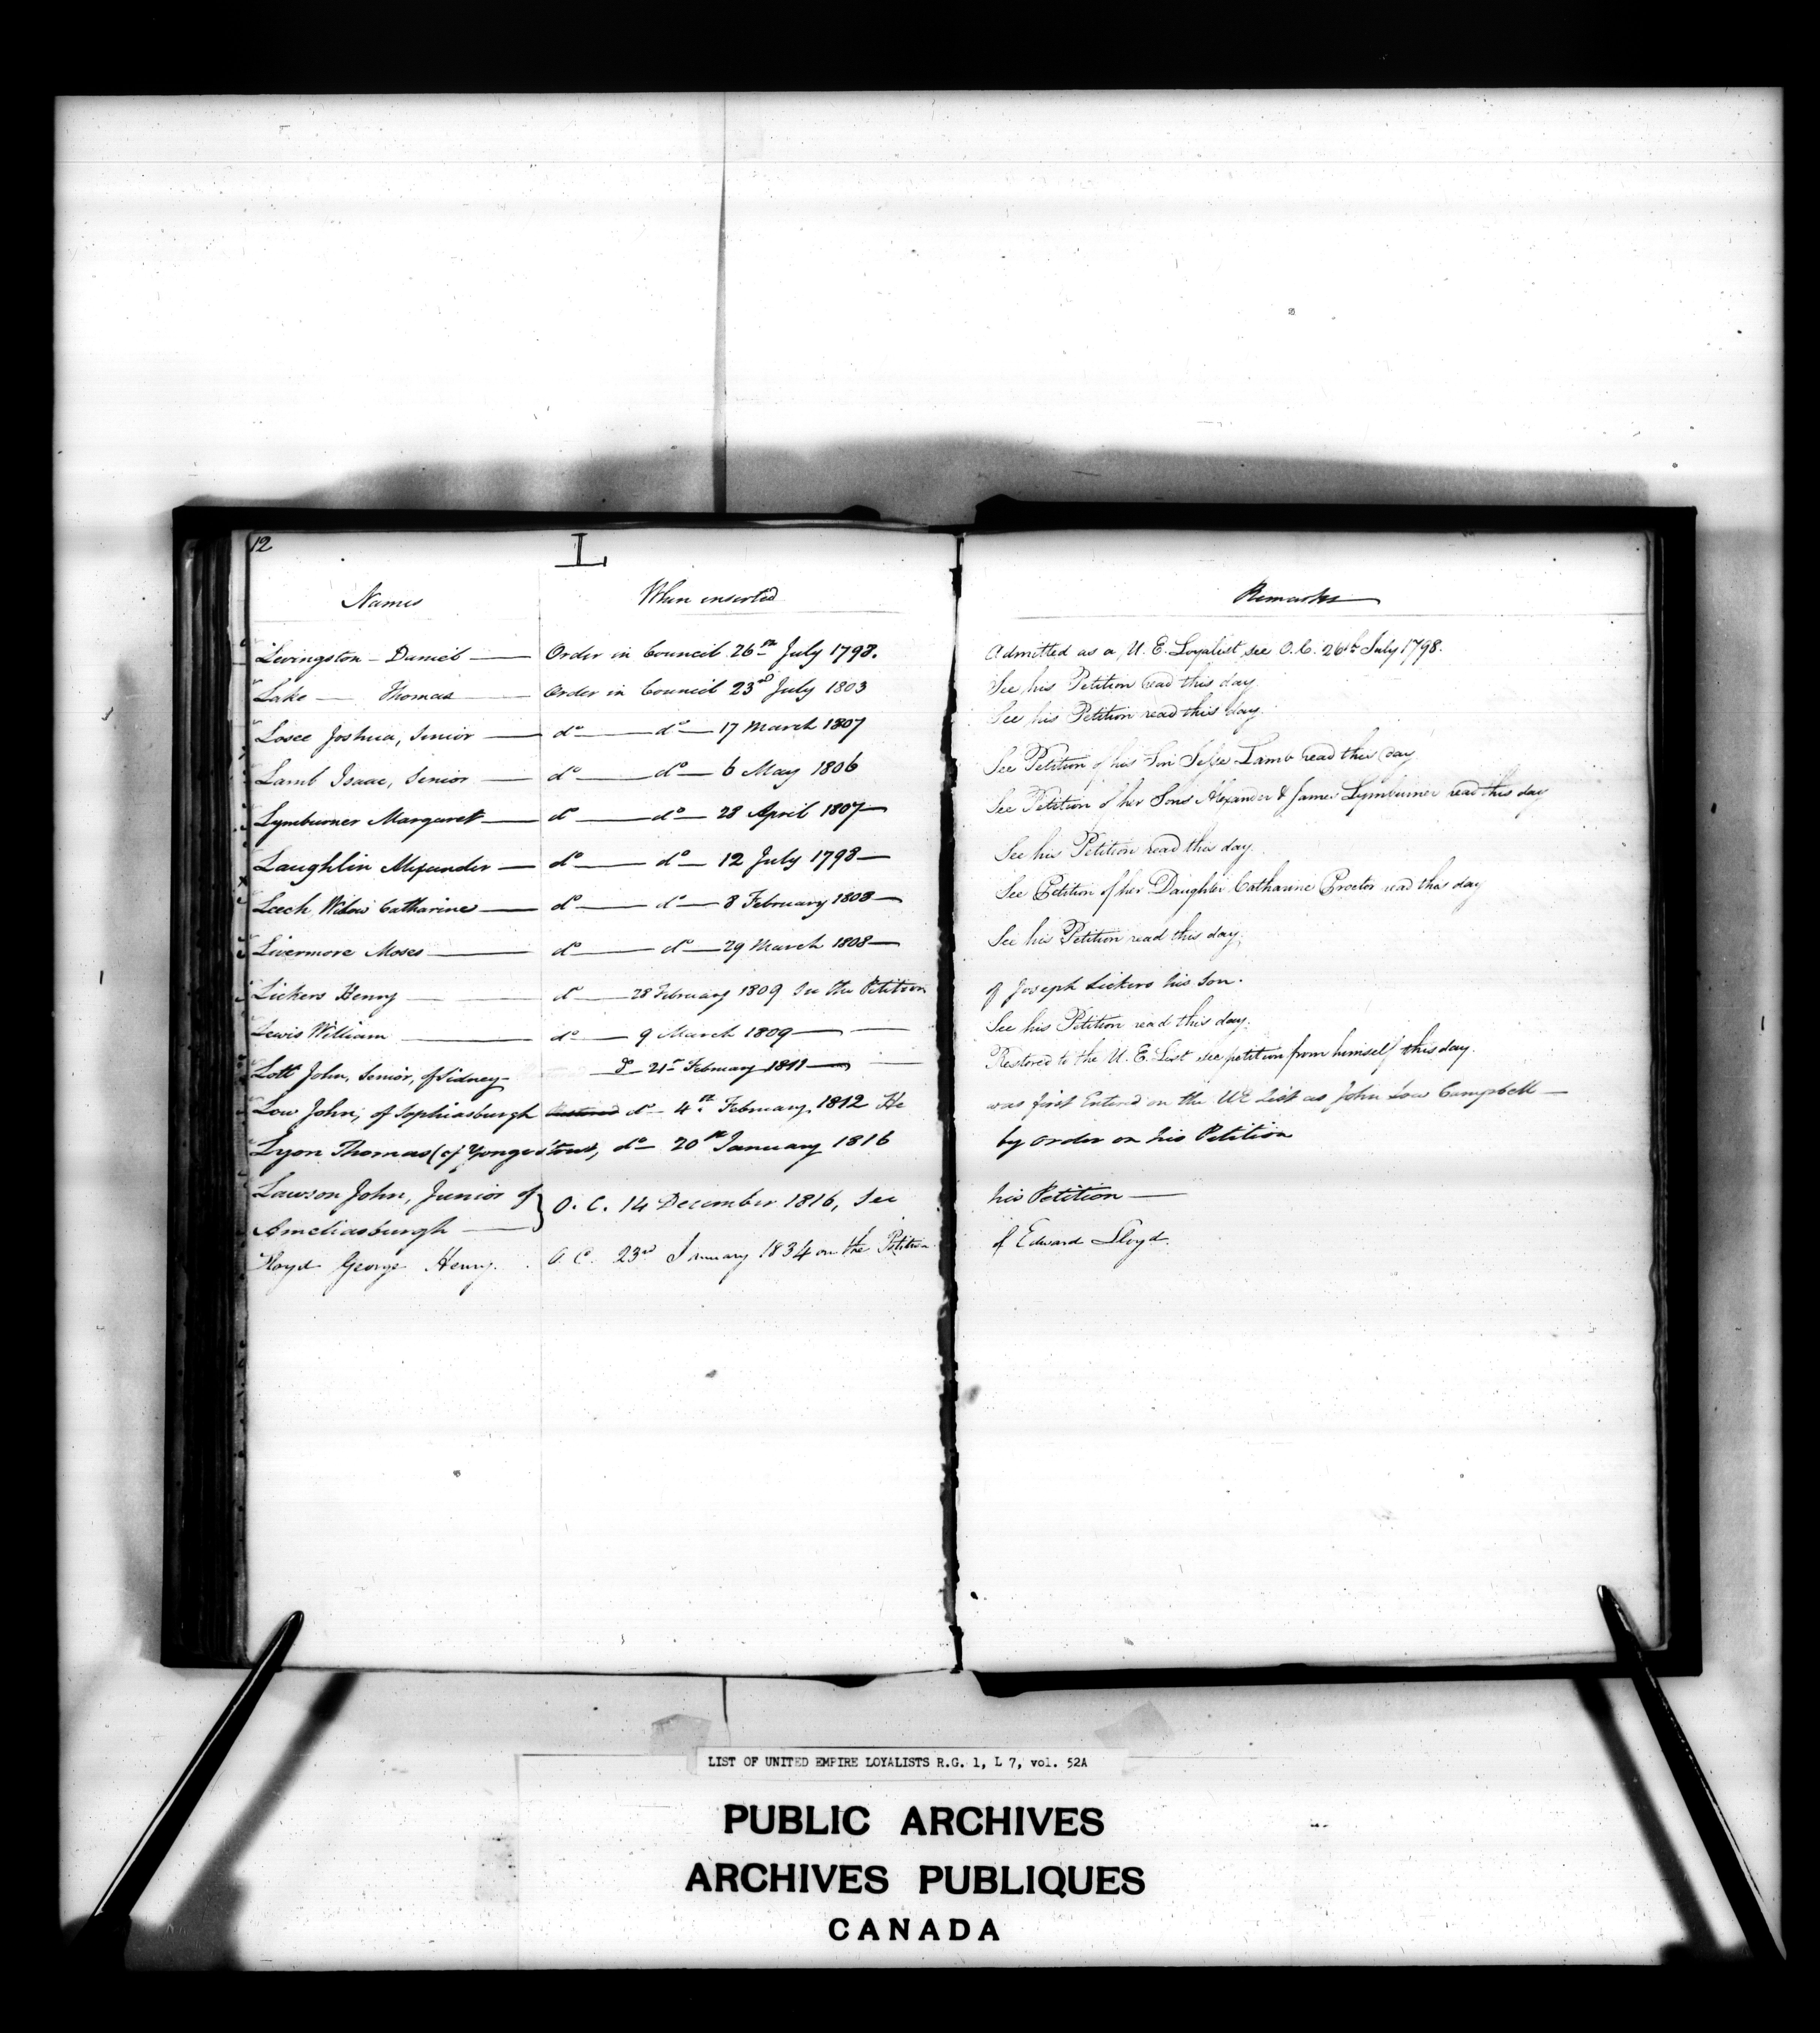 12
L
Names When inserted Remarks
Livingston - Daniel — Order in Council 26th July 1798. Admitted as a U. E. Loyalist, see O. C. 26th July 1798.
Lake — Thomas — Order in Council 23rd July 1803 See his Petition read this day
Losee Joshua, Senior — do — do — 17 March 1807 See his Petition read this day.
Lamb Isaac, Senior — do — do — 6 May 1806 See Petition of his Son Jesse Lamb read this day
Lymburner Margaret — do — do — 28 April 1807 — See Petition of her Sons Alexander & James Lymburner read this day
Laughlin Alexander — do — do — 12 July 1798 — See his Petition read this day.
Leech Widow Catharine — do — do — 8 February 1808 — See Petition of her Daughter Catharine Proctor read this day
Livermore Moses — do — do — 29 March 1808 — See his Petition read this day.
Lickers Henry — do — 28 February 1809 See the Petition of Joseph Lickers his Son.
Lewis William — do — 9 March 1809 — See his Petition read this day.
Lott John, Senior, of Sidney - do — 21st February 1811 — Restored to the U. E. List see petition from himself this day.
Low John, of Sophiasburgh do — 4th February 1812 He was first Entered on the UE List as John Low Campbell —
Lyon Thomas (of Yonge street, do — 20th January 1816 by order on his Petition
Lawson John, Junior of } O. C. 14 December 1816, See his Petition —
Ameliasburgh —
Lloyd George Henry. O. C. 23rd January 1834 on the Petition of Edward Lloyd.
LIST OF UNITED EMPIRE LOYALISTS R.G. 1, L 7, vol. 52A
PUBLIC ARCHIVES
ARCHIVES PUBLIQUES
CANADA